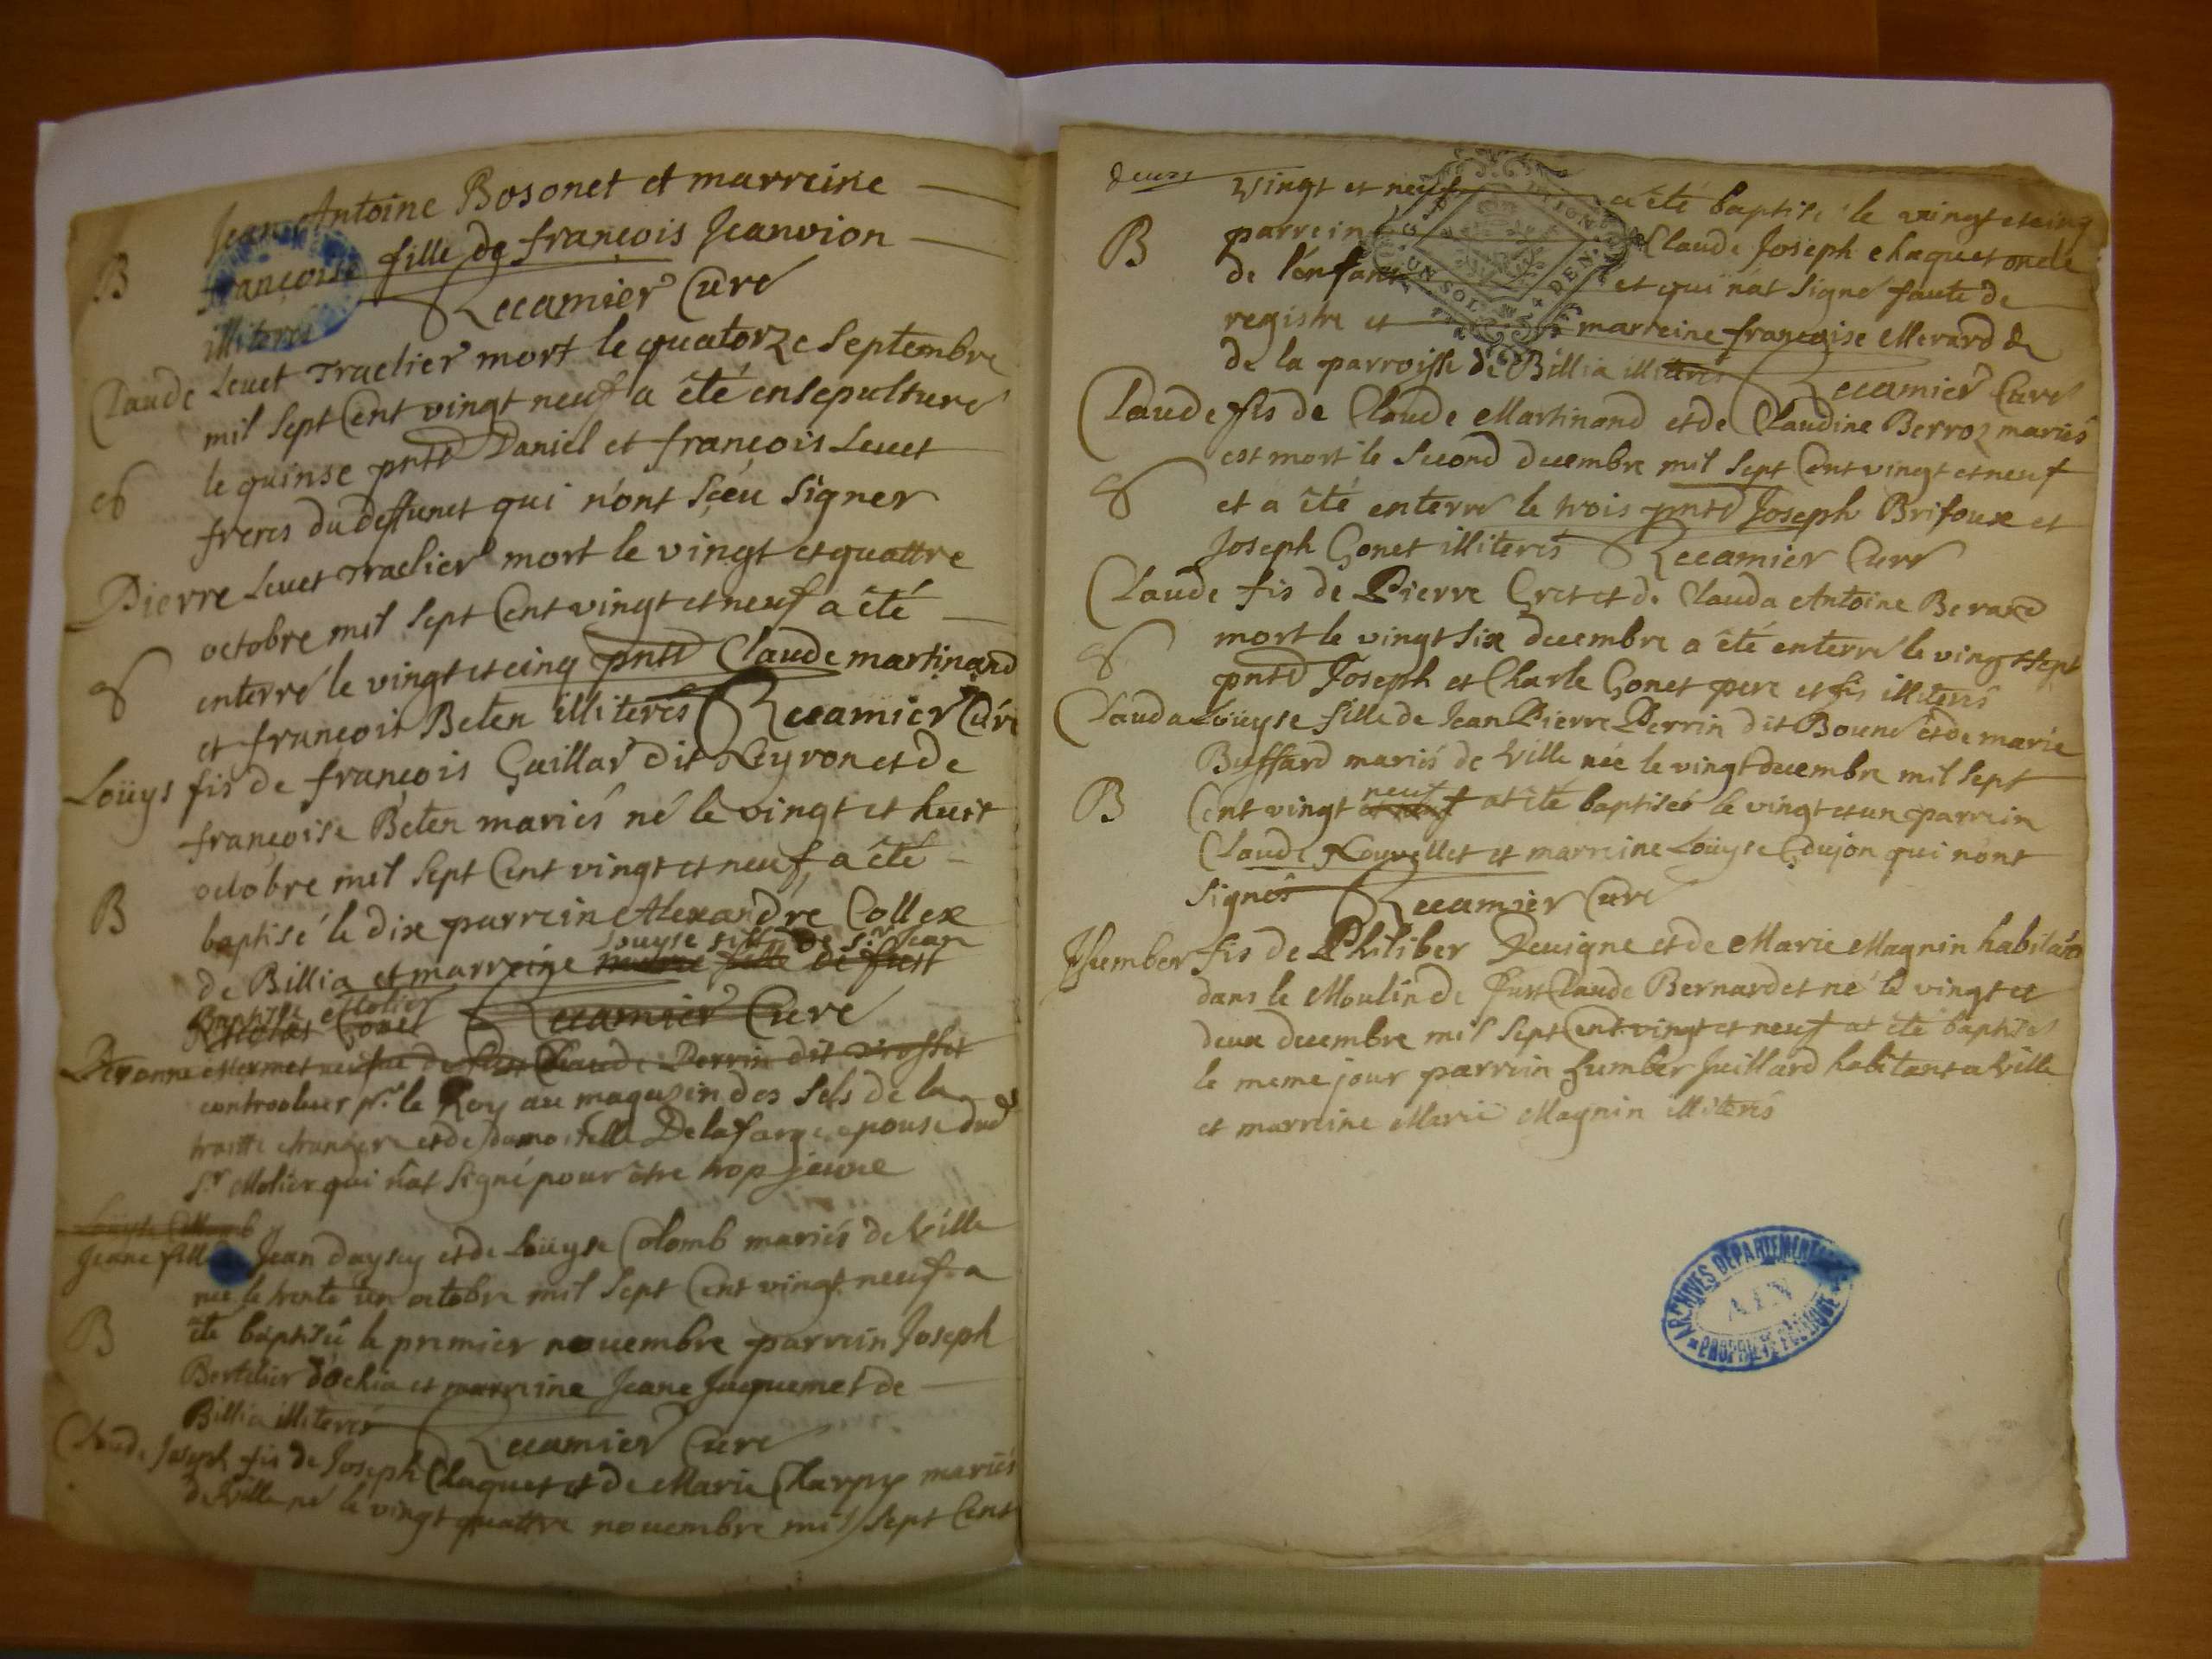 Jean Antoine Bosonet et marreine
B françoise fille de françois Jeanvion
illiteres Recamier Curé
Claude Levet Traclier mort le quatorze Septembre
mil Sept Cent vingt neuf a êté ensepulturé
le quinse pntd Daniel et françois Levet
freres du deffunct qui n'ont Sçeu Signer
Pierre Levet Traclier mort le vingt et quattre
octobre mil Sept Cent vingt et neuf a êté
enterré le vingt et cinq pntd Claude martinand
et françois Beten illiterés Recamier Curé
Loüys fis de françois Gaillar dit Leyron et de
françoise Beten mariés né le vingt et huit
octobre mil Sept Cent vingt et neuf a êté
B baptisé le dix parrein Alexandre Collex
Louyse fille de Sr Jean
de Billia et marreine
Baptiste Molier
Recamier Curé
Peronne Mermet
controoleur pr le Roy au magazin des Sels de la
traitte etrangere et de Damoiselle Delafarge epouse dud
Sr Molier qui n'at Signé pour être trop jeune
Jeane fille Jean Daysey et de Loüyse Colomb mariés de Ville
née le trente un octobre mil Sept Cent vingt neuf a
B êté baptisée le premier novembre parrein Joseph
Bertelier d'ochia et marreine Jeane Jaquemet de
Billia illiterés Recamier Curé
Claude Joseph fis de Joseph Chaquet et de Marie Charpy mariés
de Ville né le vingt quattre novembre mil Sept Cent
deux vingt et neuf a êté baptisé le vingt et cinq
B parrein Claude Joseph Chaquet oncle
de l'enfant et qui n'at Signé faute de
registre et marreine françoise Merard de
de la parroisse de Billia illiterés Recamier Curé
Claude fis de Claude Martinand et de Claudine Berroz mariés
est mort le Second decembre mil Sept Cent vingt et neuf
et a êté enterré le trois pntd Joseph Brifoux et
Joseph Gonet illiterés Recamier Curé
Claude fis de Pierre Cret et de Clauda Antoine Berard
mort le vingt Six decembre a êté enterré le vingt Sept
pntd Joseph et Charle Gonet pere et fis illiterés
Clauda Loüyse fille de Jean Pierre Perrin dit Boune et de marie
Buffard mariés de Ville née le vingt decembre mil Sept
neuf
B Cent vingt at êté baptisée le vingt et un parrein
Claude Nouvellet et marreine Loüyse Goujon qui n'ont
Signés Recamier Curé
Humber fis de Philiber Devigne et de Marie Magnin habitans
dans le Moulin de Sur Claude Bernardet né le vingt et
deux decembre mil Sept Cent vingt et neuf at êté baptisé
le meme jour parrein humber Juillard habitant a Ville
et marreine Marie Magnin illiterés
UN SOL DEN.
ARCHIVES DEPARTEMENTALES
AIN
PROPRIETE PUBLIQUE